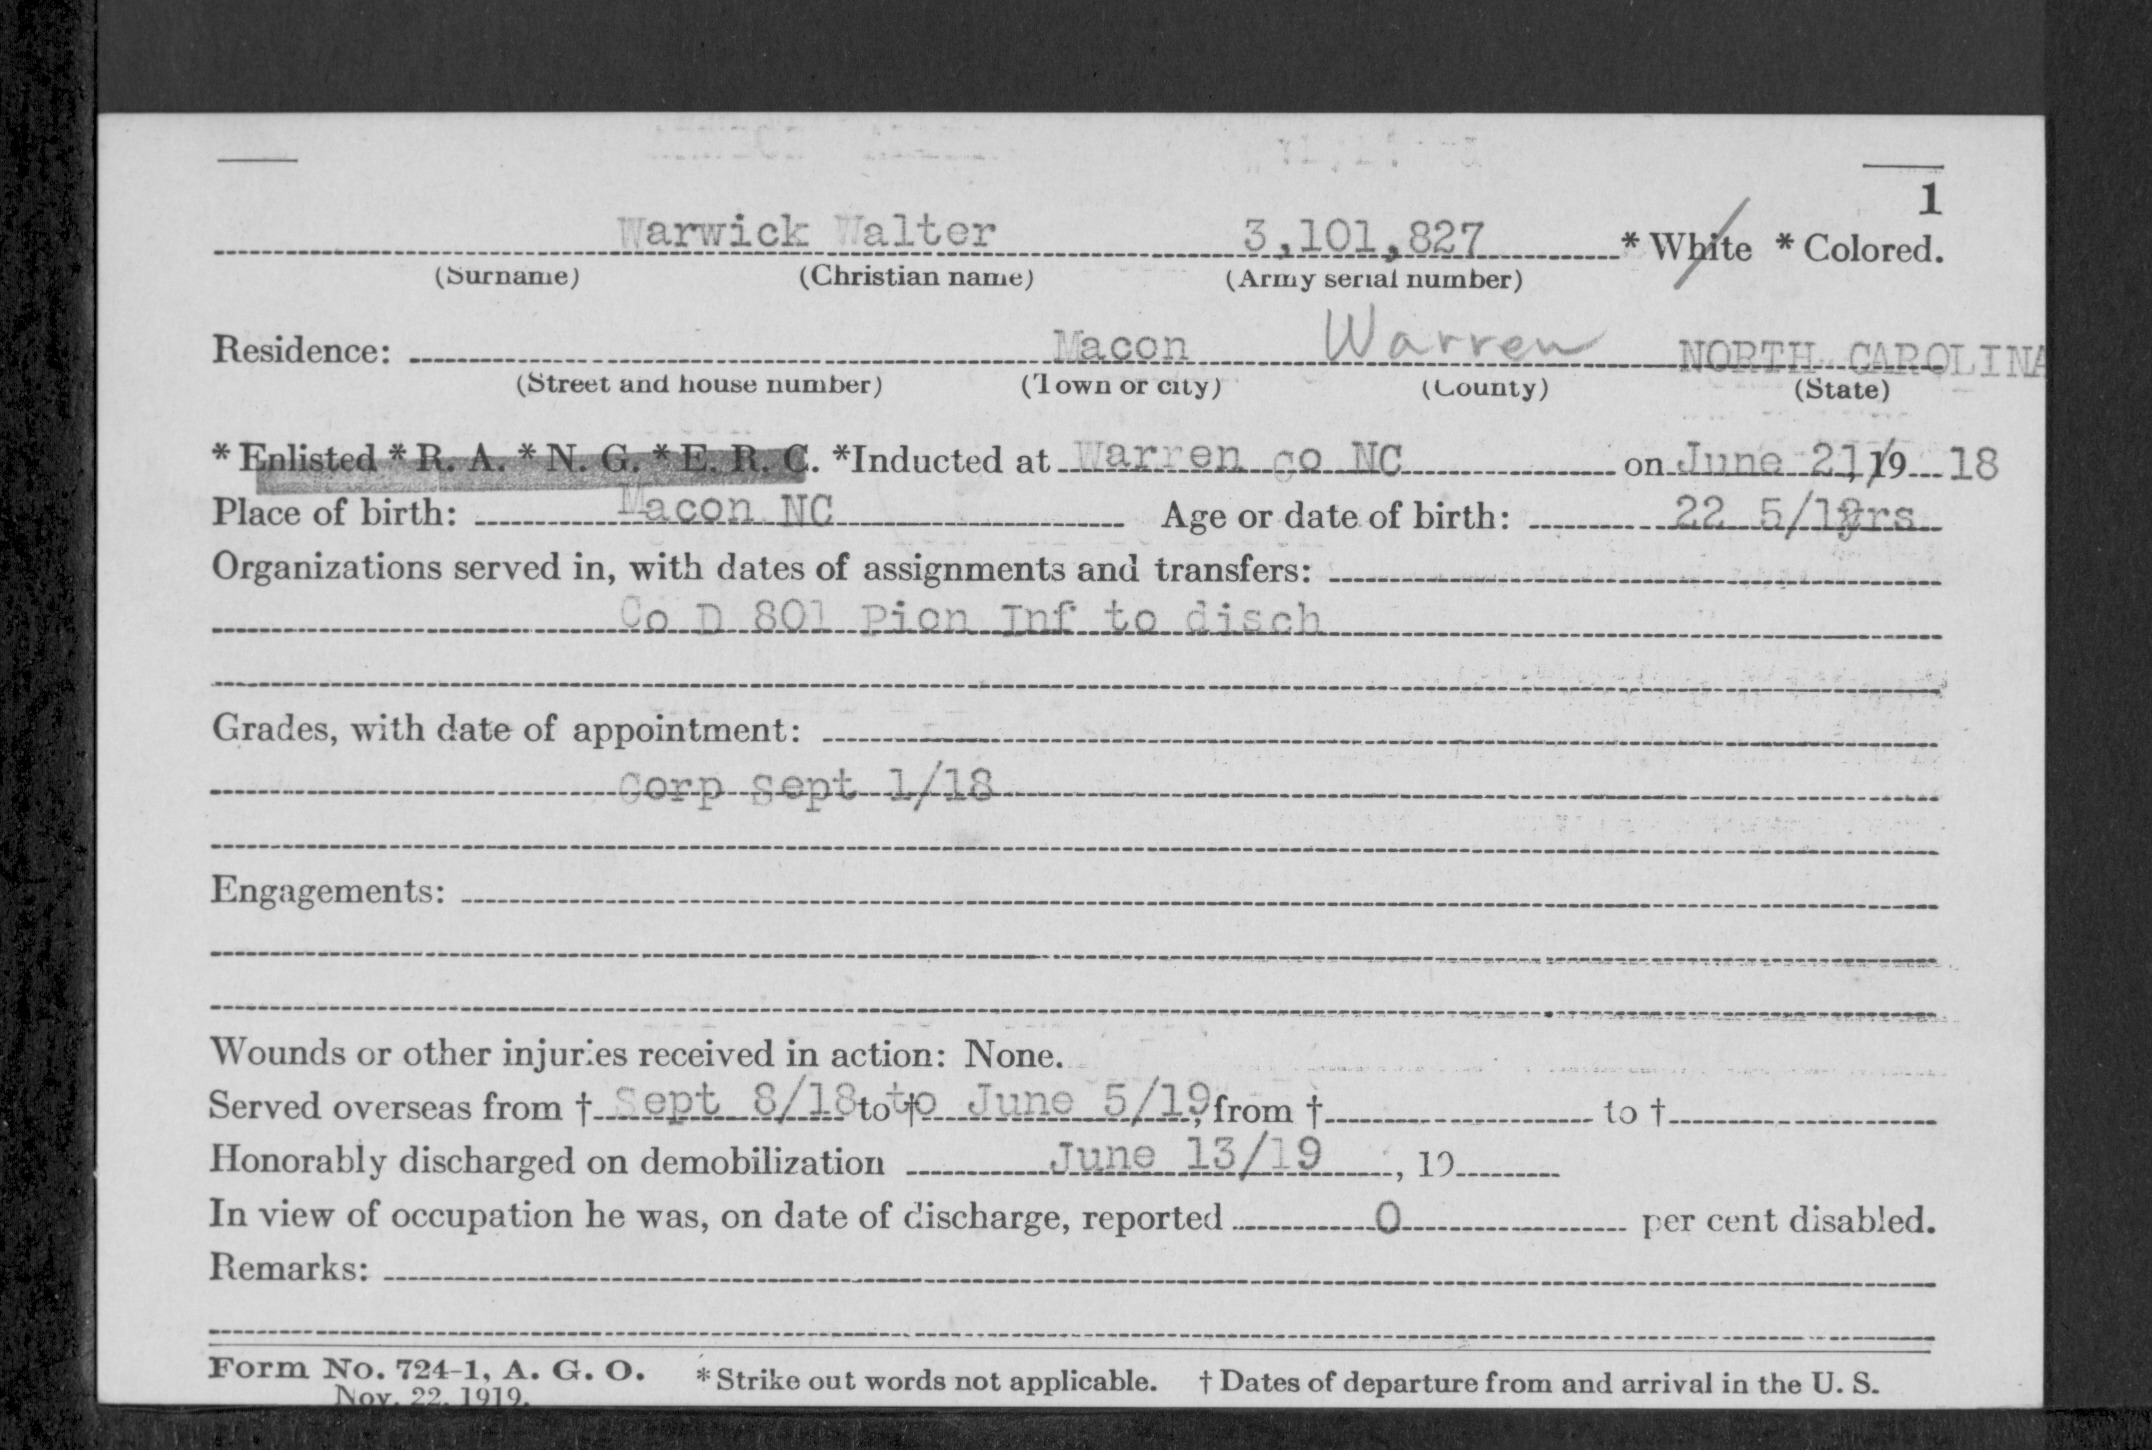 1
Warwick Walter 3,101,827 * White * Colored.
(Surname) (Christian name) (Army serial number)
Residence: Macon Warren NORTH CAROLINA
(Street and house number) (Town or city) (County) (State)
* Enlisted * R. A. * N. G. * E. R. C. *Inducted at Warren co NC on June 21/19 18
Place of birth: Macon NC Age or date of birth: 22 5/12yrs
Organizations served in, with dates of assignments and transfers:
Co D 801 Pion Inf to disch
Grades, with date of appointment:
Corp Sept 1/18
Engagements:
Wounds or other injuries received in action: None.
Served overseas from † Sept 8/18 to † to June 5/19, from † to †
Honorably discharged on demobilization June 13/19, 19
In view of occupation he was, on date of discharge, reported 0 per cent disabled.
Remarks:
Form No. 724-1, A. G. O. * Strike out words not applicable. † Dates of departure from and arrival in the U. S.
Nov. 22, 1919.